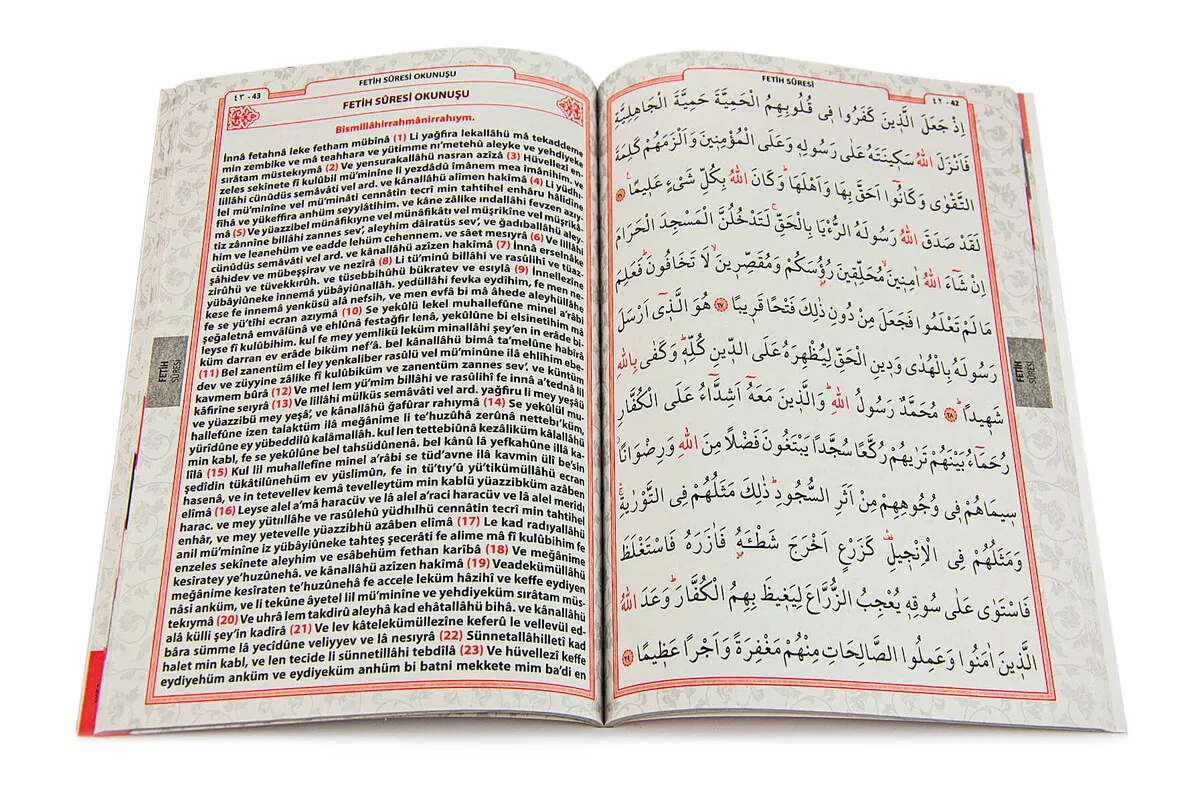 FETİH SÛRESİ
٤٢ - 42
اِذْ جَعَلَ الَّذ۪ينَ كَفَرُوا ف۪ي قُلُوبِهِمُ الْحَمِيَّةَ حَمِيَّةَ الْجَاهِلِيَّةِ
فَاَنْزَلَ اللّٰهُ سَك۪ينَتَهُ عَلٰى رَسُولِه۪ وَعَلَى الْمُؤْمِن۪ينَ وَاَلْزَمَهُمْ كَلِمَةَ
التَّقْوٰى وَكَانُٓوا اَحَقَّ بِهَا وَاَهْلَهَاۜ وَكَانَ اللّٰهُ بِكُلِّ شَيْءٍ عَل۪يمًا۟ ﴿٢٦﴾
لَقَدْ صَدَقَ اللّٰهُ رَسُولَهُ الرُّءْيَا بِالْحَقِّۚ لَتَدْخُلُنَّ الْمَسْجِدَ الْحَرَامَ
اِنْ شَٓاءَ اللّٰهُ اٰمِن۪ينَۙ مُحَلِّق۪ينَ رُؤُ۫سَكُمْ وَمُقَصِّر۪ينَۙ لَا تَخَافُونَۜ فَعَلِمَ
مَا لَمْ تَعْلَمُوا فَجَعَلَ مِنْ دُونِ ذٰلِكَ فَتْحًا قَر۪يبًا ﴿٢٧﴾ هُوَ الَّذ۪ٓي اَرْسَلَ
رَسُولَهُ بِالْهُدٰى وَد۪ينِ الْحَقِّ لِيُظْهِرَهُ عَلَى الدّ۪ينِ كُلِّه۪ۜ وَكَفٰى بِاللّٰهِ
شَه۪يدًاۜ ﴿٢٨﴾ مُحَمَّدٌ رَسُولُ اللّٰهِۜ وَالَّذ۪ينَ مَعَهُٓ اَشِدَّٓاءُ عَلَى الْكُفَّارِ
رُحَمَٓاءُ بَيْنَهُمْ تَرٰيهُمْ رُكَّعًا سُجَّدًا يَبْتَغُونَ فَضْلًا مِنَ اللّٰهِ وَرِضْوَانًاۘ
س۪يمَاهُمْ ف۪ي وُجُوهِهِمْ مِنْ اَثَرِ السُّجُودِۜ ذٰلِكَ مَثَلُهُمْ فِي التَّوْرٰيةِۚ
وَمَثَلُهُمْ فِي الْاِنْج۪يلِ۠ كَزَرْعٍ اَخْرَجَ شَطْـَٔهُ فَاٰزَرَهُ فَاسْتَغْلَظَ
فَاسْتَوٰى عَلٰى سُوقِه۪ يُعْجِبُ الزُّرَّاعَ لِيَغ۪يظَ بِهِمُ الْكُفَّارَۜ وَعَدَ اللّٰهُ
الَّذ۪ينَ اٰمَنُوا وَعَمِلُوا الصَّالِحَاتِ مِنْهُمْ مَغْفِرَةً وَاَجْرًا عَظ۪يمًا ﴿٢٩﴾
FETİH
SÛRESİ
FETİH SÛRESİ OKUNUŞU
٤٣ - 43
FETİH SÛRESİ OKUNUŞU
Bismillâhirrahmânirrahıym.
İnnâ fetahnâ leke fetham mübînâ (1) Li yağfira lekallâhü mâ tekaddeme
min zembike ve mâ teahhara ve yütimme nı'metehû aleyke ve yehdiyeke
sırâtam müstekıymâ (2) Ve yensurakallâhü nasran azîzâ (3) Hüvellezî en-
zeles sekînete fî kulûbil mü'minîne li yezdâdû îmânem mea îmânihim, ve
lillâhi cünûdüs semâvâti vel ard. ve kânallâhü alîmen hakîmâ (4) Li yüdhı-
lel mü'minîne vel mü'minâti cennâtin tecrî min tahtihel enhâru hâlidîne
fîhâ ve yükeffira anhüm seyyiâtihim. ve kâne zâlike ındallâhi fevzen azıy-
mâ (5) Ve yüazzibel münâfikıyne vel münâfikâti vel müşrikîne vel müşrikâ-
tiz zânnîne billâhi zannes sev', aleyhim dâiratüs sev', ve ğadıballâhü aley-
him ve leanehüm ve eadde lehüm cehennem. ve sâet mesıyrâ (6) Ve lillâhi
cünûdüs semâvâti vel ard. ve kânallâhü azîzen hakîmâ (7) İnnâ erselnâke
şâhidev ve mübeşşirav ve nezîrâ (8) Li tü'minû billâhi ve rasûlihî ve tüaz-
zirûhü ve tüvekkırûh. ve tüsebbihûhü bükratev ve esıylâ (9) İnnellezîne
yübâyiûneke innemâ yübâyiûnallah. yedüllâhi fevka eydîhim, fe men ne-
kese fe innemâ yenküsü alâ nefsih, ve men evfâ bi mâ âhede aleyhüllâhe
fe se yü'tîhi ecran azıymâ (10) Se yekûlü lekel muhallefûne minel a'râbi
şeğaletnâ emvâlünâ ve ehlûnâ festağfir lenâ, yekûlûne bi elsinetihim mâ
leyse fî kulûbihim. kul fe mey yemlikü leküm minallâhi şey'en in erâde bi-
küm darran ev erâde biküm nef'â. bel kânallâhü bimâ ta'melûne habîrâ
(11) Bel zanentüm el ley yenkaliber rasûlü vel mü'minûne ilâ ehlîhim ebe-
dev ve züyyine zâlike fî kulûbiküm ve zanentüm zannes sev'. ve küntüm
kavmem bûrâ (12) Ve mel lem yü'mim billâhi ve rasûlihî fe innâ a'tednâ lil
kâfirîne seıyrâ (13) Ve lillâhi mülküs semâvâti vel ard. yağfiru li mey yeşâü
ve yüazzibü mey yeşâ', ve kânallâhü ğafûrar rahıymâ (14) Se yekûlül mu-
hallefûne izen talaktüm ilâ meğânime li te'huzûhâ zerûnâ nettebı'küm,
yürîdûne ey yübeddilû kalâmallâh. kul len tettebiûnâ kezâliküm kâlallâhü
min kabl, fe se yekûlûne bel tahsüdûnenâ. bel kânû lâ yefkahûne illâ ka-
lîlâ (15) Kul lil muhallefîne minel a'râbi se tüd'avne ilâ kavmin ülî be'sin
şedîdin tükâtilûnehüm ev yüslimûn, fe in tütıy'û yü'tikümüllâhü ecran
hasenâ, ve in tetevellev kemâ tevelleytüm min kablü yüazzibküm azâben
elîmâ (16) Leyse alel a'mâ haracüv ve lâ alel a'raci haracüv ve lâ alel merîdı
harac. ve mey yütıllâhe ve rasûlehû yüdhılhü cennâtin tecrî min tahtihel
enhâr, ve mey yetevelle yüazzibhü azâben elîmâ (17) Le kad radıyallâhü
anil mü'minîne iz yübâyiûneke tahteş şecerâti fe alime mâ fî kulûbihim fe
enzeles sekînete aleyhim ve esâbehüm fethan karîbâ (18) Ve meğânime
kesîratey ye'huzûnehâ. ve kânallâhü azîzen hakîmâ (19) Veadekümüllâhü
meğânime kesîraten te'huzûnehâ fe accele leküm hâzihî ve keffe eydiyen
nâsi anküm, ve li tekûne âyetel lil mü'minîne ve yehdiyeküm sırâtam müs-
tekıymâ (20) Ve uhrâ lem takdirû aleyhâ kad ehâtallâhü bihâ. ve kânallâhü
alâ külli şey'in kadîrâ (21) Ve lev kâtelekümüllezîne keferû le vellevül ed-
bâra sümme lâ yecidûne veliyyev ve lâ nesıyrâ (22) Sünnetallâhilletî kad
halet min kabl, ve len tecide li sünnetillâhi tebdîlâ (23) Ve hüvellezî keffe
eydiyehüm anküm ve eydiyeküm anhüm bi batni mekkete mim ba'di en
FETİH
SÛRESİ